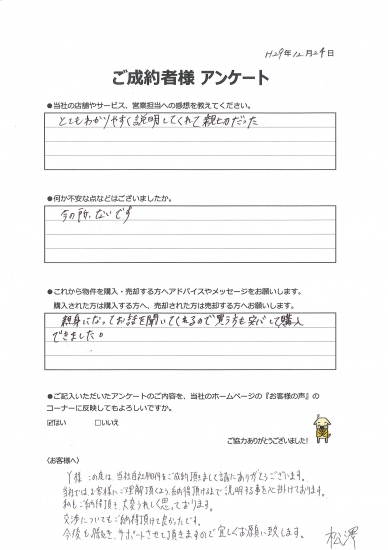 H29年12月24日
ご成約者様 アンケート
●当社の店舗やサービス、営業担当への感想を教えてください。
とてもわかりやすく説明してくれて親切だった
●何か不安な点などはございましたか。
今の所、ないです
●これから物件を購入・売却する方へアドバイスやメッセージをお願いします。
購入された方は購入する方へ、売却された方は売却する方へお願いします。
親身になってお話を聞いてくれるので買う方も安心して購入
できました。
●ご記入いただいたアンケートのご内容を、当社のホームページの『お客様の声』の
コーナーに反映してもよろしいですか。
☑はい □いいえ
ご協力ありがとうございました!
〈お客様へ〉
Y様 この度は、当社自社物件をご成約頂きまして誠にありがとうございます。
当社ではお客様にご理解頂くよう、納得頂けるまで説明する事を心掛けております。
私もご納得頂き、大変うれしく思っております。
交渉についてもご納得頂けて良かったです。
今後も引続き、サポートさせて頂きますので宜しくお願い致します。
松澤